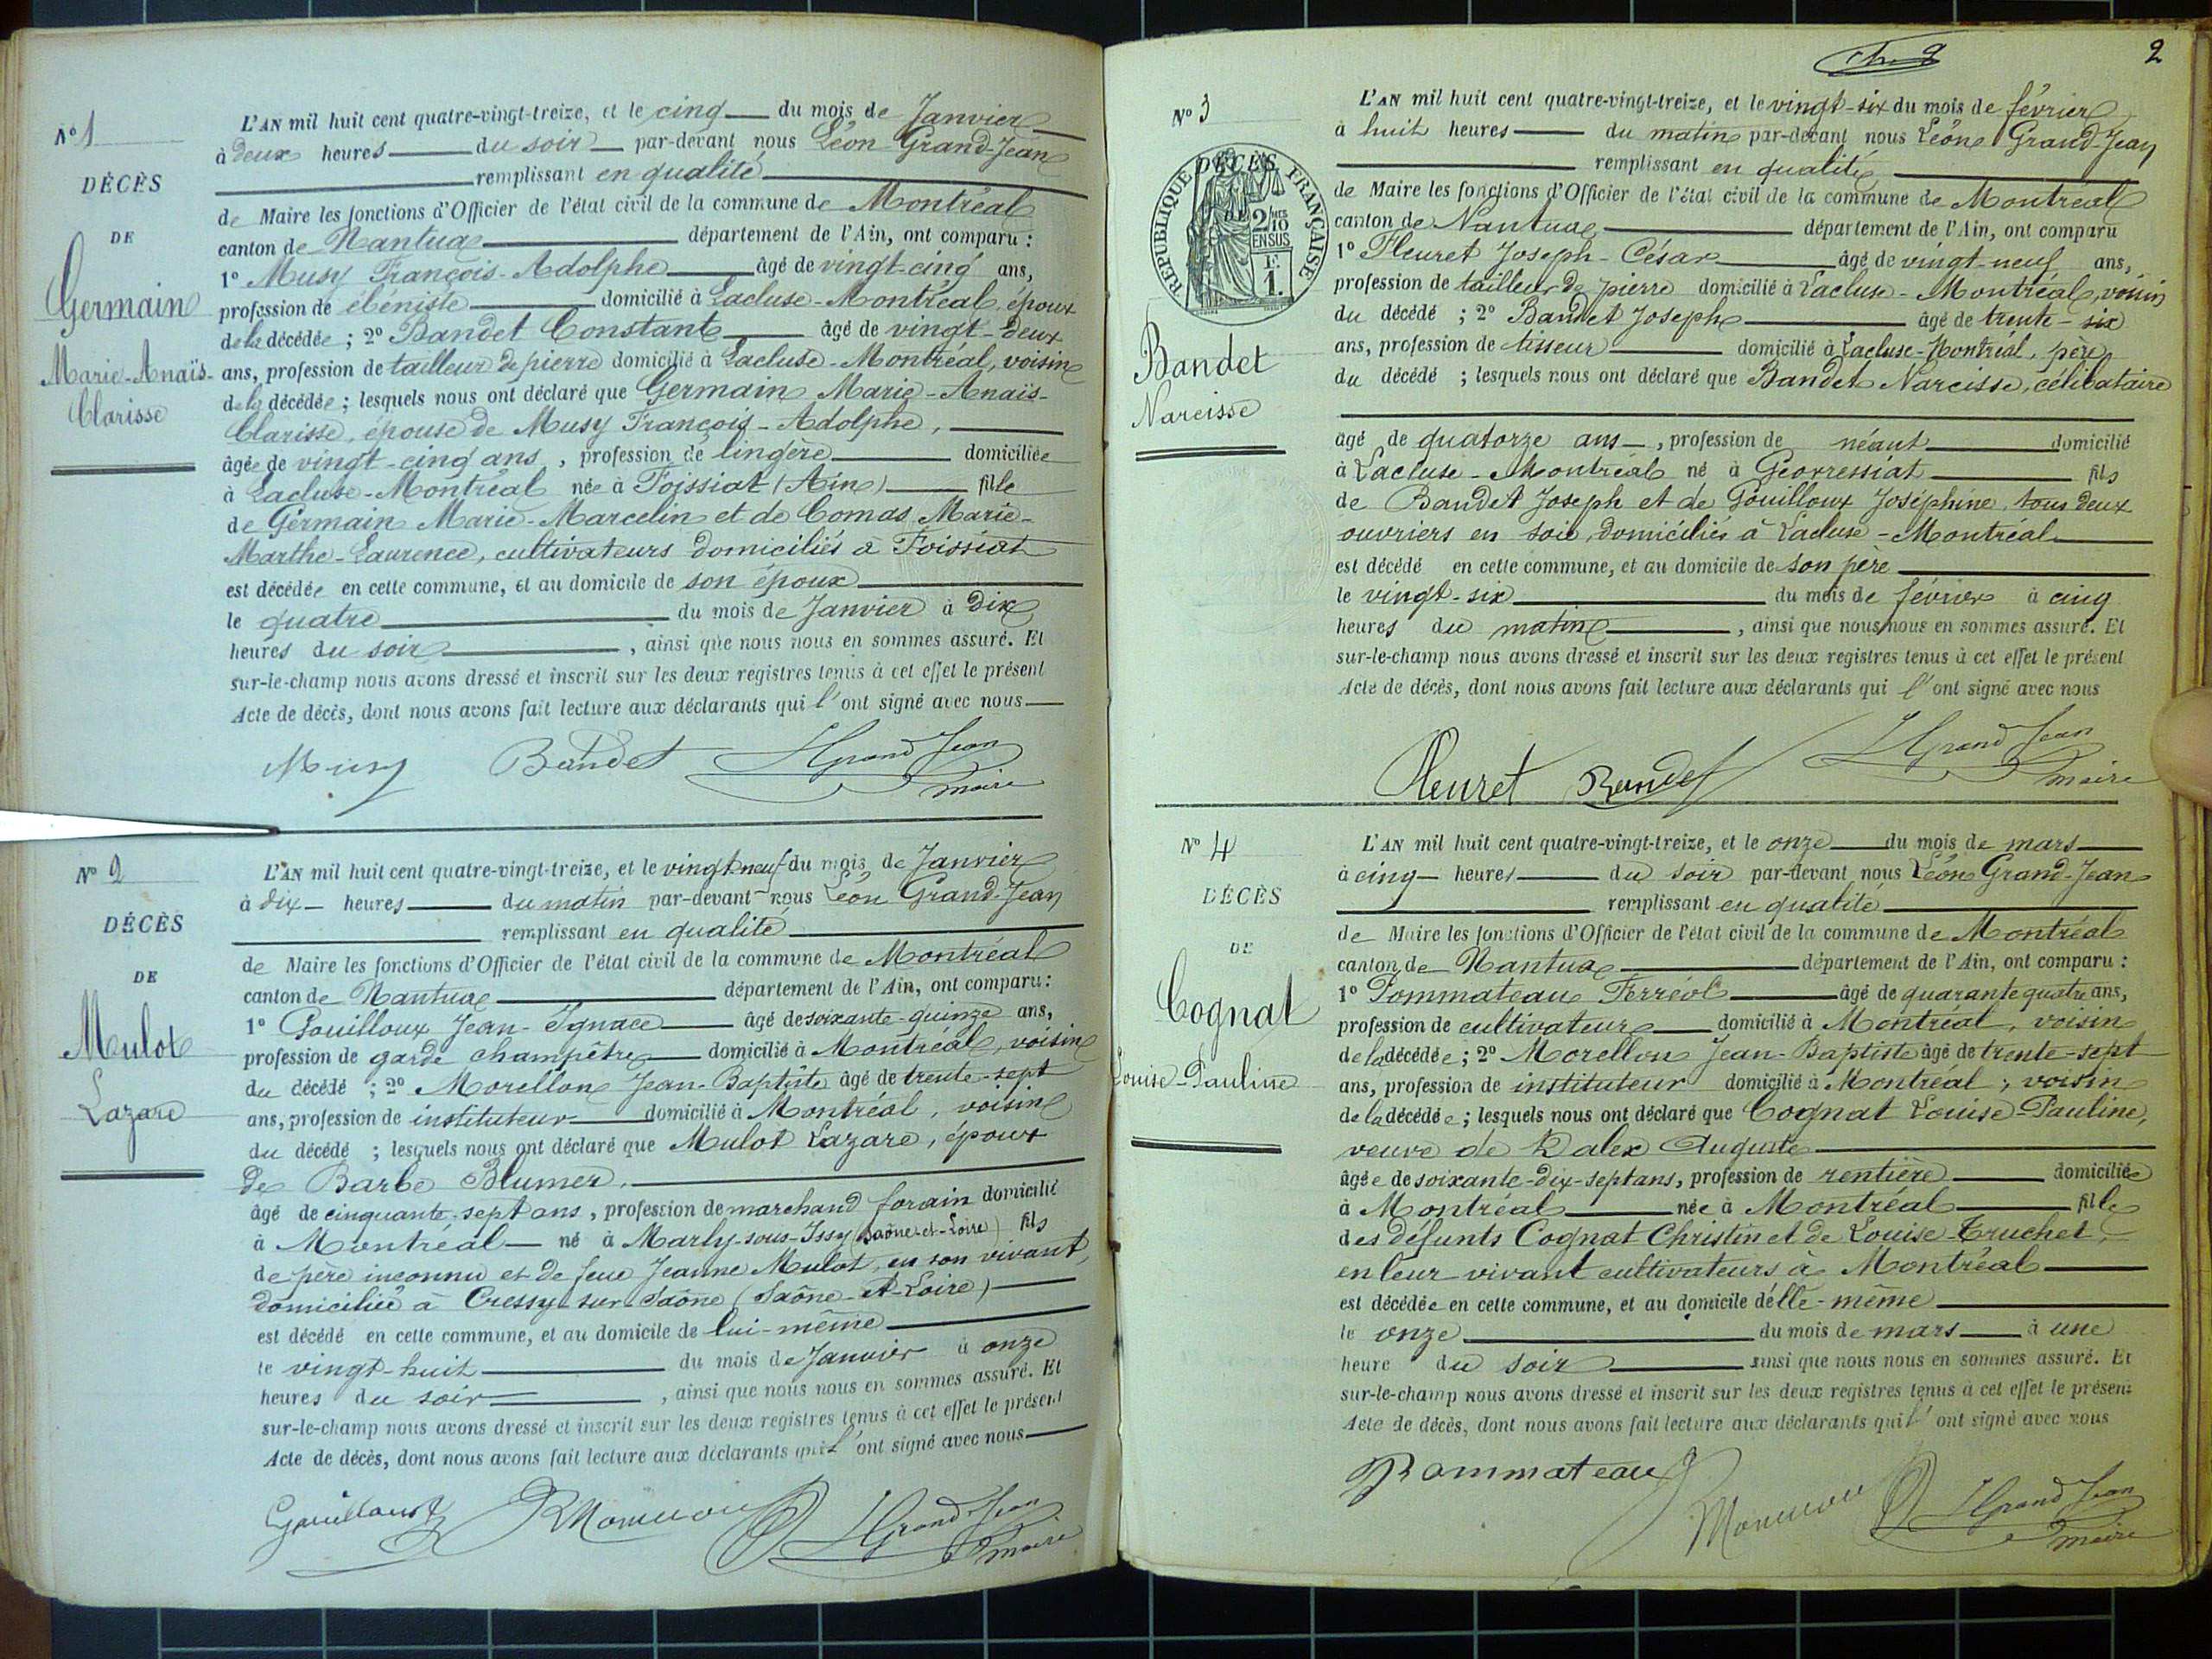 N° 1
DÉCÈS
DE
Germain
Marie-Anaïs-
Clarisse
L'AN mil huit cent quatre-vingt-treize, et le cinq du mois de Janvier
à deux heures du soir par-devant nous Léon Grand-Jean
remplissant en qualité
de Maire les fonctions d'Officier de l'état civil de la commune de Montréal
canton de Nantua département de l'Ain, ont comparu :
1° Musy François-Adolphe âgé de vingt-cinq ans,
profession de ébéniste domicilié à Lacluse-Montréal, époux
de la décédée ; 2° Bandet Constant âgé de vingt-deux
ans, profession de tailleur de pierre domicilié à Lacluse-Montréal, voisin
de la décédée ; lesquels nous ont déclaré que Germain Marie-Anaïs-
Clarisse, épouse de Musy François-Adolphe,
âgée de vingt-cinq ans, profession de lingère domiciliée
à Lacluse-Montréal née à Foissiat (Ain) fille
de Germain Marie-Marcelin et de Comas Marie-
Marthe-Laurence, cultivateurs domiciliés à Foissiat
est décédée en cette commune, et au domicile de son époux
le quatre du mois de Janvier à dix
heures du soir, ainsi que nous nous en sommes assuré. Et
sur-le-champ nous avons dressé et inscrit sur les deux registres tenus à cet effet le présent
Acte de décès, dont nous avons fait lecture aux déclarants qui l'ont signé avec nous
Musy Bandet LGrand Jean
maire
N° 2
DÉCÈS
DE
Mulot
Lazare
L'AN mil huit cent quatre-vingt-treize, et le vingt-neuf du mois de Janvier
à dix heures du matin par-devant nous Léon Grand-Jean
remplissant en qualité
de Maire les fonctions d'Officier de l'état civil de la commune de Montréal
canton de Nantua département de l'Ain, ont comparu :
1° Gouilloux Jean-Ignace âgé de soixante-quinze ans,
profession de garde champêtre domicilié à Montréal, voisin
du décédé ; 2° Morellon Jean-Baptiste âgé de trente-sept
ans, profession de instituteur domicilié à Montréal, voisin
du décédé ; lesquels nous ont déclaré que Mulot Lazare, époux
de Barbe Blumer,
âgé de cinquante-sept ans, profession de marchand forain domicilié
à Montréal né à Marly-sous-Issy (Saône-et-Loire) fils
de père inconnu et de feue Jeanne Mulot, en son vivant,
domiciliée à Cressy-sur-Saône (Saône-et-Loire)
est décédé en cette commune, et au domicile de lui-même
le vingt-huit du mois de Janvier à onze
heures du soir, ainsi que nous nous en sommes assuré. Et
sur-le-champ nous avons dressé et inscrit sur les deux registres tenus à cet effet le présent
Acte de décès, dont nous avons fait lecture aux déclarants qui l'ont signé avec nous
Gouilloux LGrand Jean
maire
2
N° 3
DÉCÈS
RÉPUBLIQUE FRANÇAISE
2/10
EN SUS
1.
Bandet
Narcisse
L'AN mil huit cent quatre-vingt-treize, et le vingt-six du mois de février
à huit heures du matin par-devant nous Léon Grand-Jean
remplissant en qualité
de Maire les fonctions d'Officier de l'état civil de la commune de Montréal
canton de Nantua département de l'Ain, ont comparu
1° Fleuret Joseph-César âgé de vingt-neuf ans,
profession de tailleur de pierre domicilié à Lacluse-Montréal, voisin
du décédé ; 2° Bandet Joseph âgé de trente-six
ans, profession de tisseur domicilié à Lacluse-Montréal, père
du décédé ; lesquels nous ont déclaré que Bandet Narcisse, célibataire
âgé de quatorze ans, profession de néant domicilié
à Lacluse-Montréal né à Géovressiat fils
de Bandet Joseph et de Gouilloux Joséphine, tous deux
ouvriers en soie, domiciliés à Lacluse-Montréal
est décédé en cette commune, et au domicile de son père
le vingt-six du mois de février à cinq
heures du matin, ainsi que nous nous en sommes assuré. Et
sur-le-champ nous avons dressé et inscrit sur les deux registres tenus à cet effet le présent
Acte de décès, dont nous avons fait lecture aux déclarants qui l'ont signé avec nous
Fleuret Bandet LGrand Jean
maire
N° 4
DÉCÈS
DE
Cognat
Louise-Pauline
L'AN mil huit cent quatre-vingt-treize, et le onze du mois de mars
à cinq heures du soir par-devant nous Léon Grand-Jean
remplissant en qualité
de Maire les fonctions d'Officier de l'état civil de la commune de Montréal
canton de Nantua département de l'Ain, ont comparu :
1° Pommateau Ferréol âgé de quarante quatre ans,
profession de cultivateur domicilié à Montréal, voisin
de la décédée ; 2° Morellon Jean-Baptiste âgé de trente-sept
ans, profession de instituteur domicilié à Montréal, voisin
de la décédée ; lesquels nous ont déclaré que Cognat Louise-Pauline,
veuve de Dalex Auguste
âgée de soixante-dix-sept ans, profession de rentière domiciliée
à Montréal née à Montréal fille
des défunts Cognat Christin et de Louise Truchet,
en leur vivant cultivateurs à Montréal
est décédée en cette commune, et au domicile d'elle-même
le onze du mois de mars à une
heure du soir ainsi que nous nous en sommes assuré. Et
sur-le-champ nous avons dressé et inscrit sur les deux registres tenus à cet effet le présent
Acte de décès, dont nous avons fait lecture aux déclarants qui l'ont signé avec nous
Pommateau LGrand Jean
maire